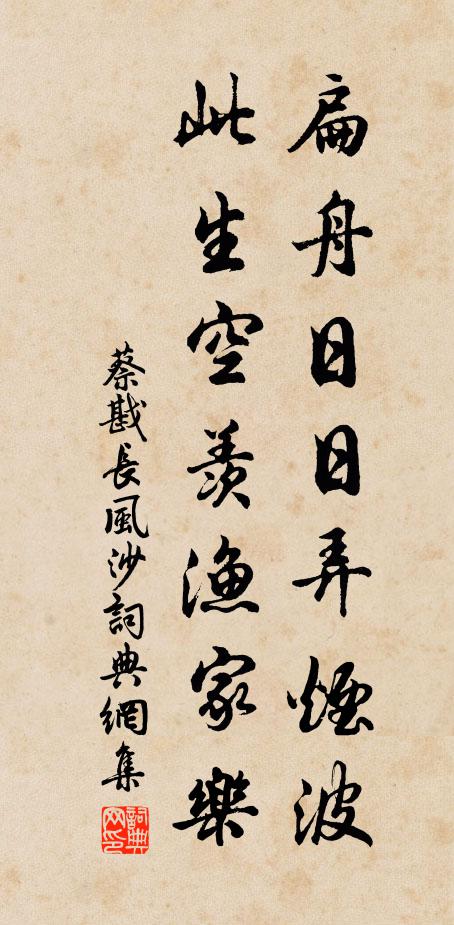 扁舟日日弄煙波
此生空羨漁家樂
蔡戡長風沙詞典網集
詞典
网印